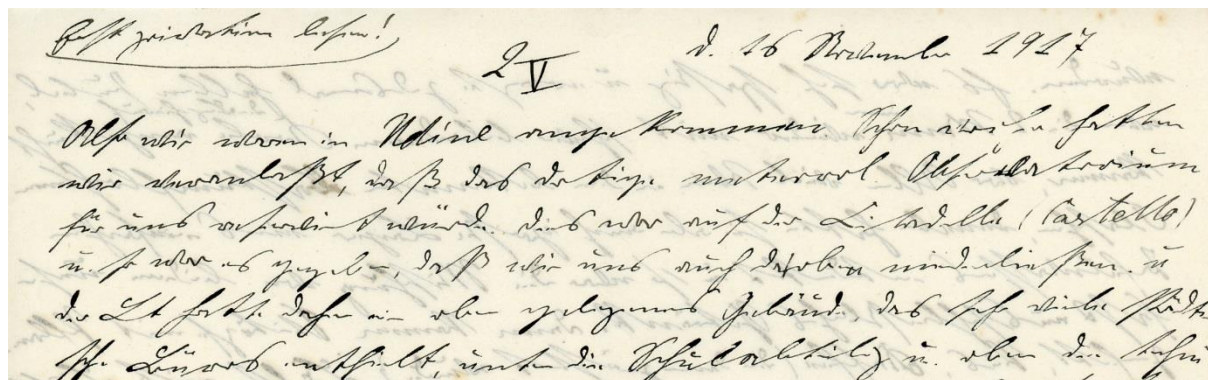 2 V d. 16 November 1917
Also wir waren in Udine angekommen. Schon vorher hatten
wir veranlaßt, daß das dortige meteorol. Observatorium
für uns reserviert würde. Dies war auf der Zitadelle (Castello)
u. so war es gegeben, daß wir uns auch daroben niederließen. u
der Lt hatte daher ein oben gelegenes Gebäude, das sehr viele städti
sche Büros enthielt, unten die Schulabteilg u. oben die techni